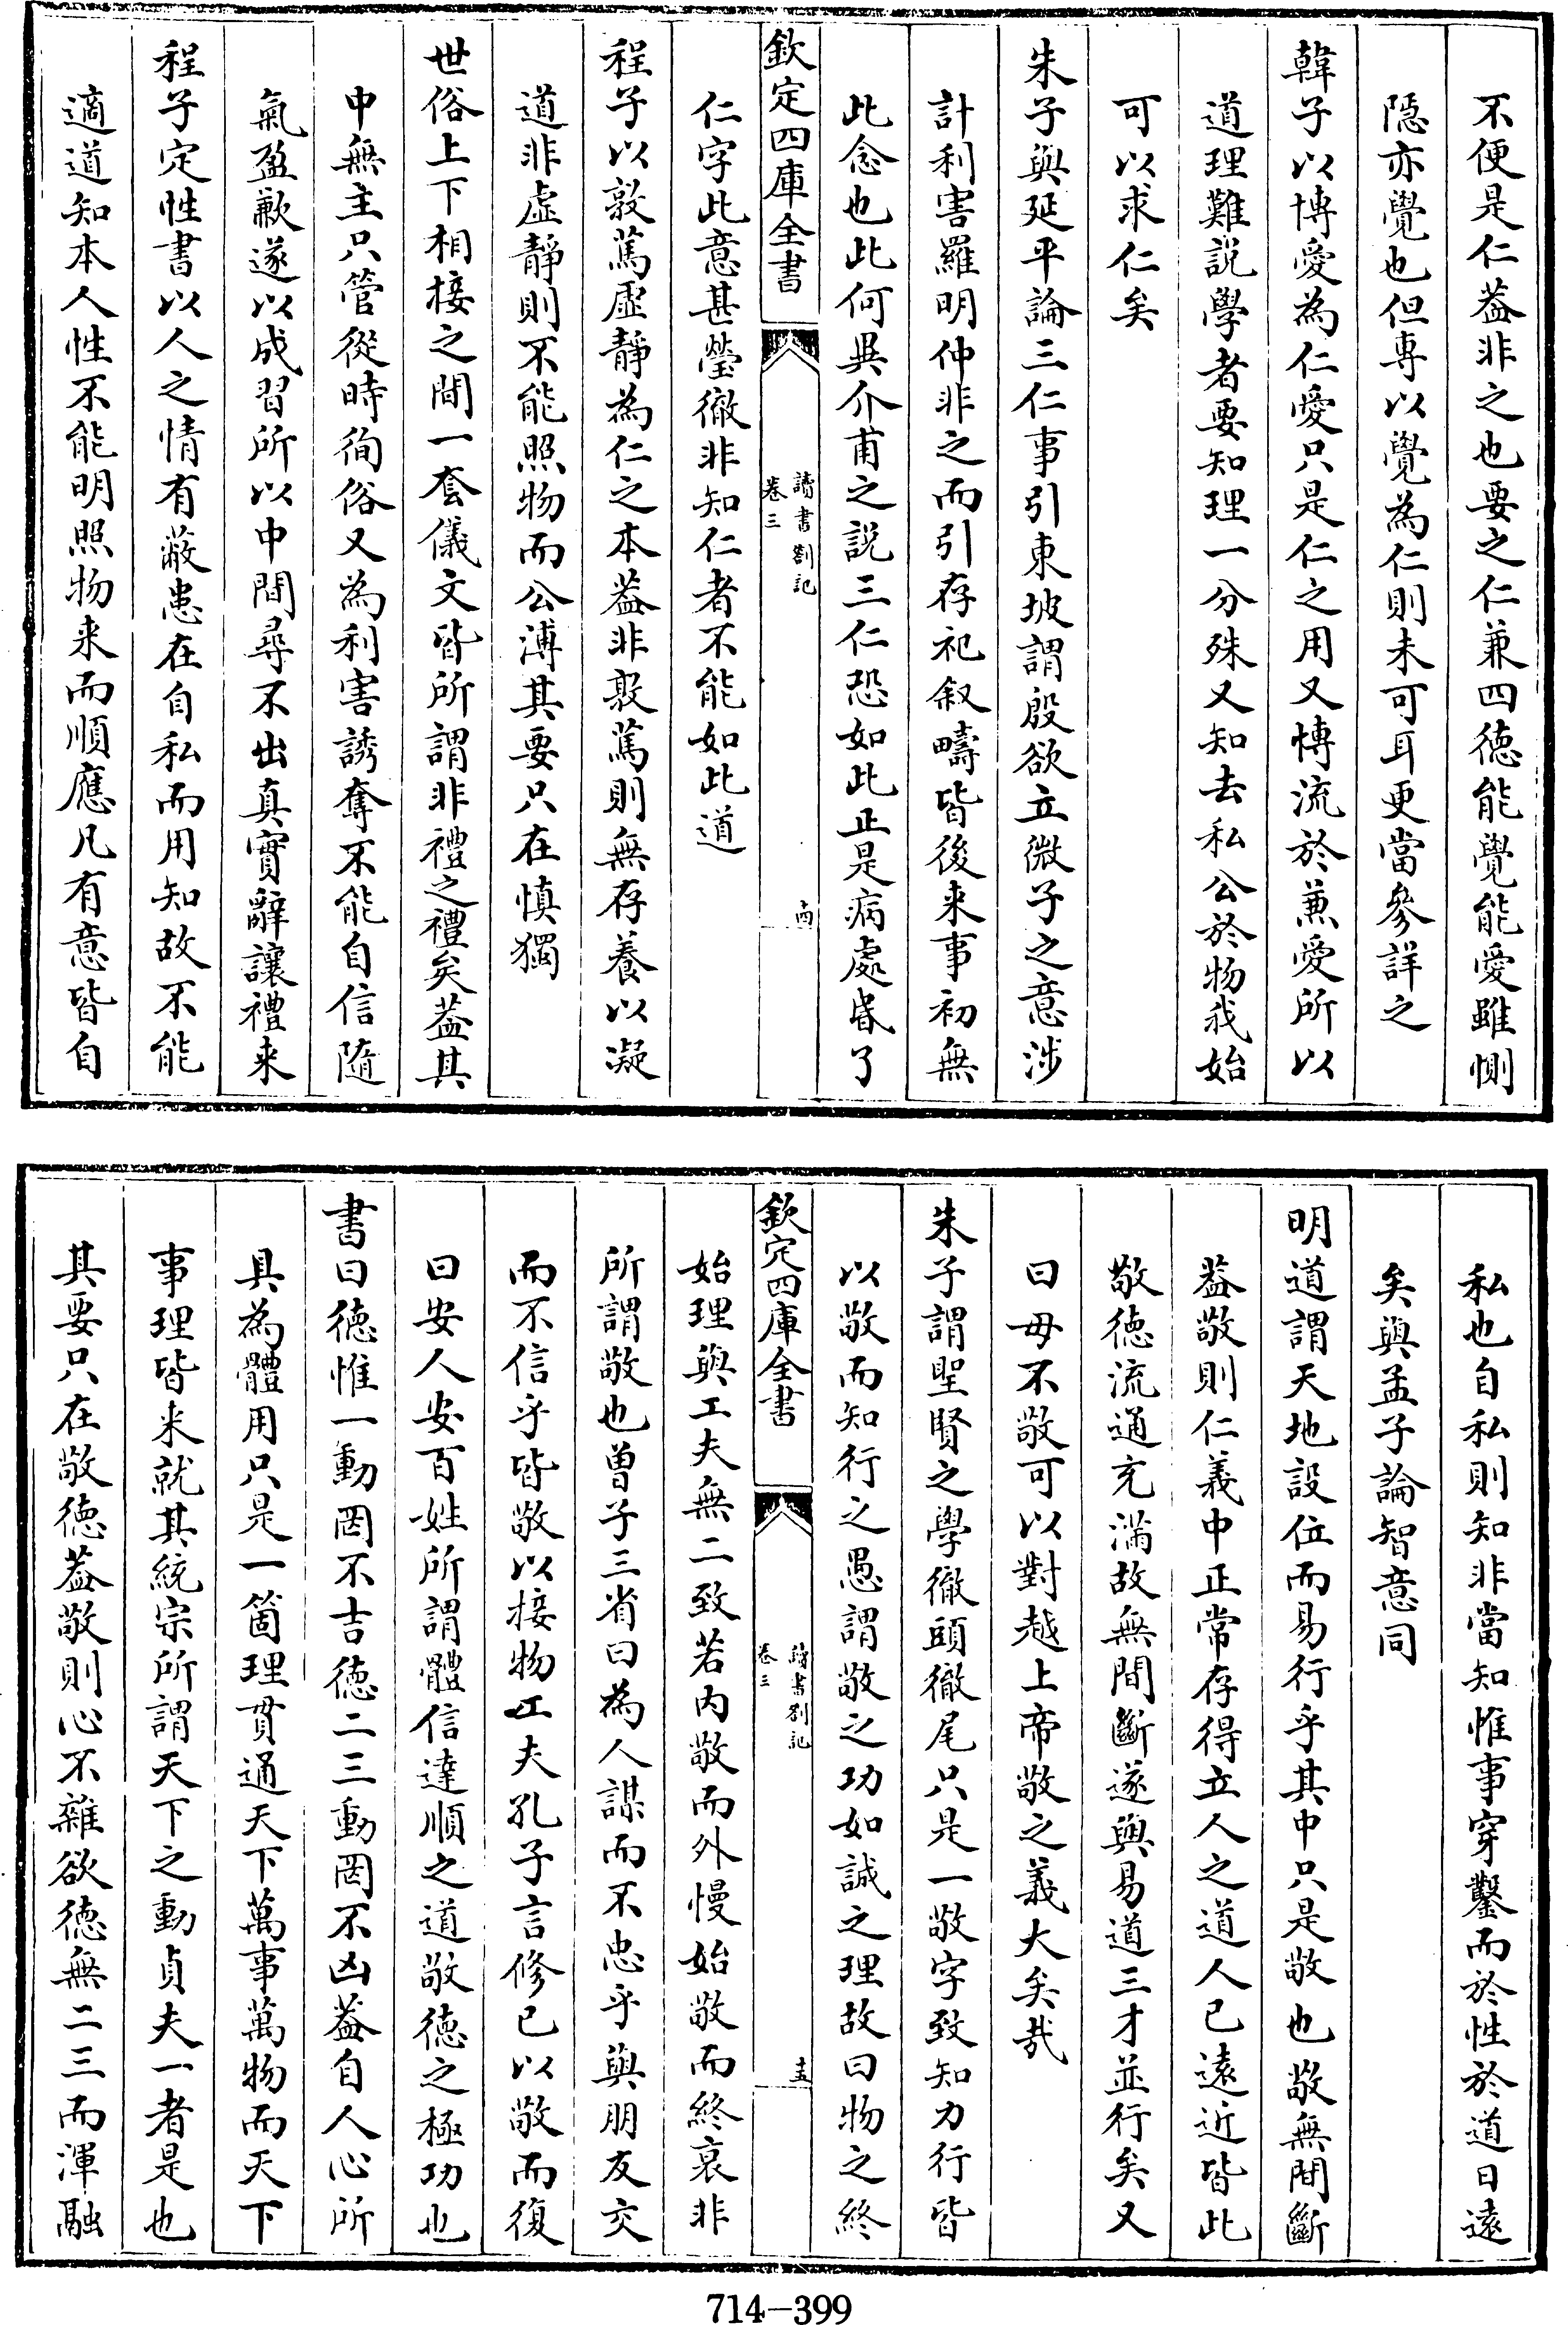 不便是仁葢非之也要之仁兼四徳能覺能愛雖惻
隠亦覺也但專以覺為仁則未可耳更當參詳之
韓子以博愛為仁愛只是仁之用又慱流於兼愛所以
道理難説學者要知理一分殊又知去私公於物我始
可以求仁矣
朱子與延平論三仁事引東坡謂殷欲立微子之意涉
計利害羅明仲非之而引存祀叙疇皆後来事初無
此念也此何異介甫之説三仁恐如此正是病處昏了
欽定四庫全書
讀書劄記
卷三
仁字此意甚瑩徹非知仁者不能如此道
程子以敦篤虛靜為仁之本葢非敦篤則無存養以凝
道非虛靜則不能照物而公溥其要只在慎獨
世俗上下相接之間一套儀文皆所謂非禮之禮矣葢其
中無主只管從時徇俗又為利害誘奪不能自信隨
氣盈歉遂以成習所以中間尋不出真實辭讓禮来
程子定性書以人之情有蔽患在自私而用知故不能
適道知本人性不能明照物来而順應凡有意皆自
私也自私則知非當知惟事穿鑿而於性於道日遠
矣與孟子論智意同
明道謂天地設位而易行乎其中只是敬也敬無間斷
葢敬則仁義中正常存得立人之道人已遠近皆此
敬徳流通充滿故無間斷遂與易道三才並行矣又
曰毋不敬可以對越上帝敬之義大矣哉
朱子謂聖賢之學徹頭徹尾只是一敬字致知力行皆
以敬而知行之愚謂敬之功如誠之理故曰物之終
欽定四庫全書
讀書劄記
卷三
十五
始理與工夫無二致若内敬而外慢始敬而終衰非
所謂敬也曽子三省曰為人謀而不忠乎與朋友交
而不信乎皆敬以接物工夫孔子言修已以敬而復
曰安人安百姓所謂體信達順之道敬徳之極功也
書曰徳惟一動罔不吉徳二三動罔不凶葢自人心所
具為體用只是一箇理貫通天下萬事萬物而天下
事理皆来就其統宗所謂天下之動貞夫一者是也
其要只在敬徳葢敬則心不雜欲徳無二三而渾融
714-399